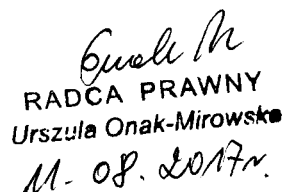 RADCA PRAWNY
Urszula Onak-Mirowska
11-08.2017r.